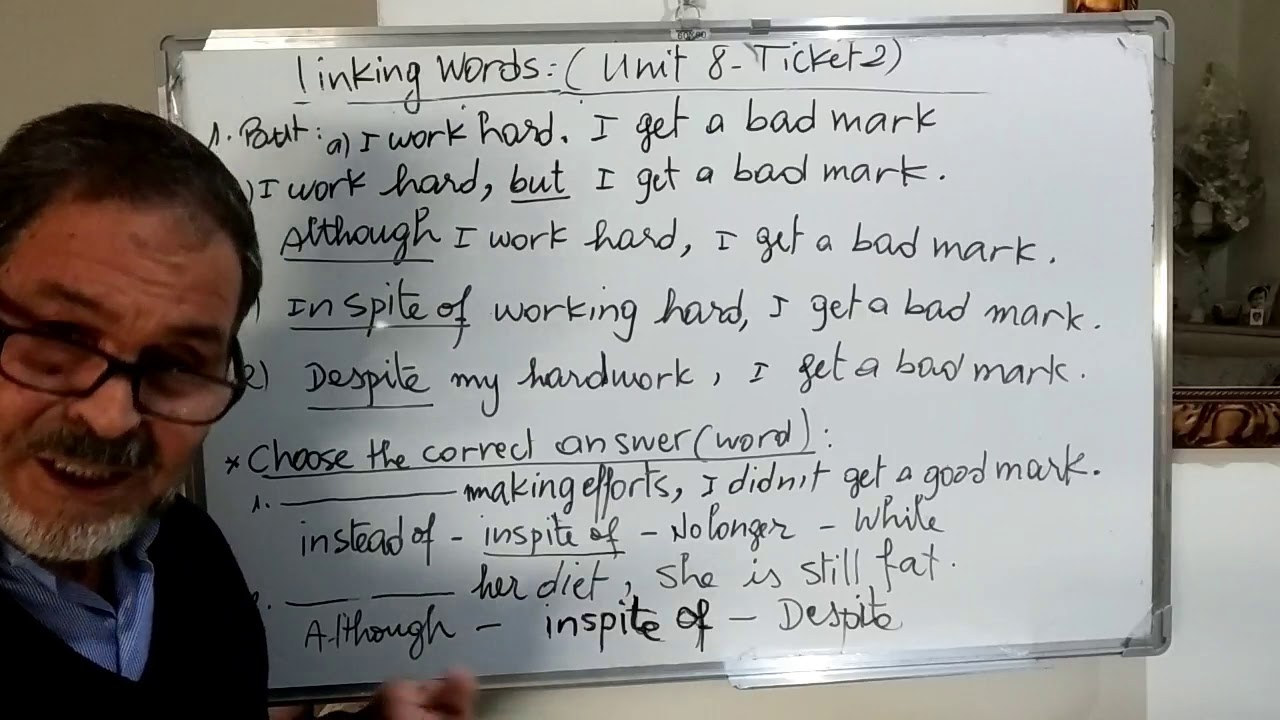 Linking Words: (Unit 8 - Ticket 2)
1. But: a) I work hard. I get a bad mark
) I work hard, but I get a bad mark.
Although I work hard, I get a bad mark.
) Inspite of working hard, I get a bad mark.
e) Despite my hardwork, I get a bad mark.
* Choose the correct answer (word):
1. ________ making efforts, I didn't get a good mark.
instead of - inspite of - No longer - While
___ ____ her diet, she is still fat.
Although - inspite of - Despite